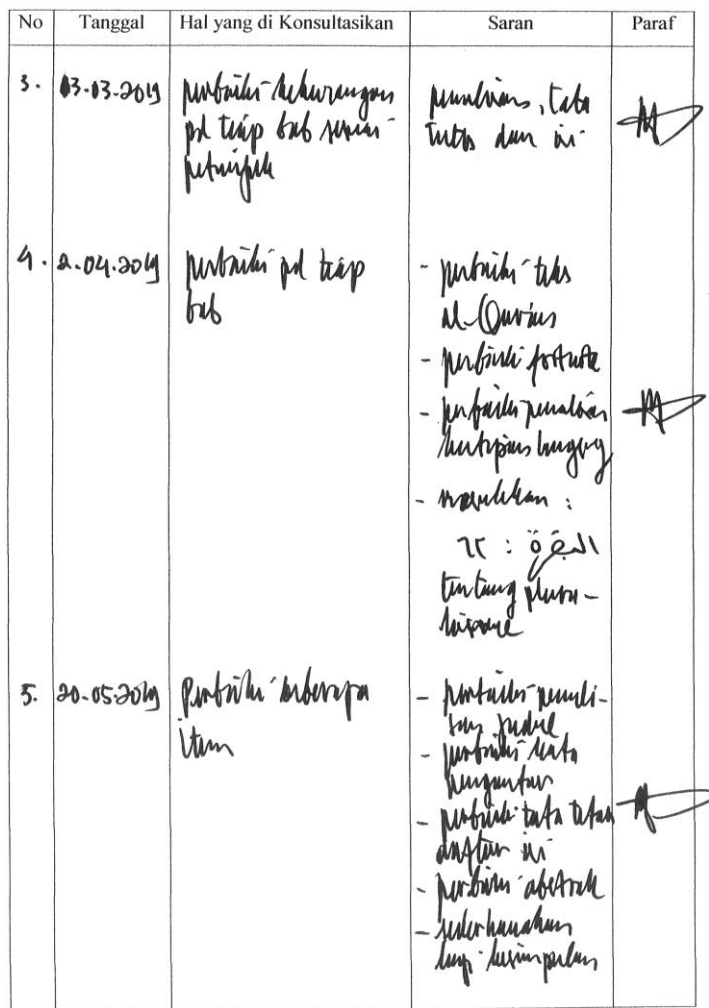 No Tanggal Hal yang di Konsultasikan Saran Paraf
3. 03-03-2019 perbaiki kekurangan penulisan, tata
pd tiap bab sesuai tulis dan isi
petunjuk
4. 2-04-2019 perbaiki pd tiap - perbaiki teks
bab al-Qur'an
- perbaiki footnote
- perbaiki penulisan
kutipan langsung
- masukkan :
البقرة : ٦٢
tentang plura-
lisme
5. 20-05-2019 Perbaiki beberapa - perbaiki penuli-
item san judul
- perbaiki kata
pengantar
- perbaiki tata letak
daftar isi
- perbaiki abstrak
- sederhanakan
lagi kesimpulan